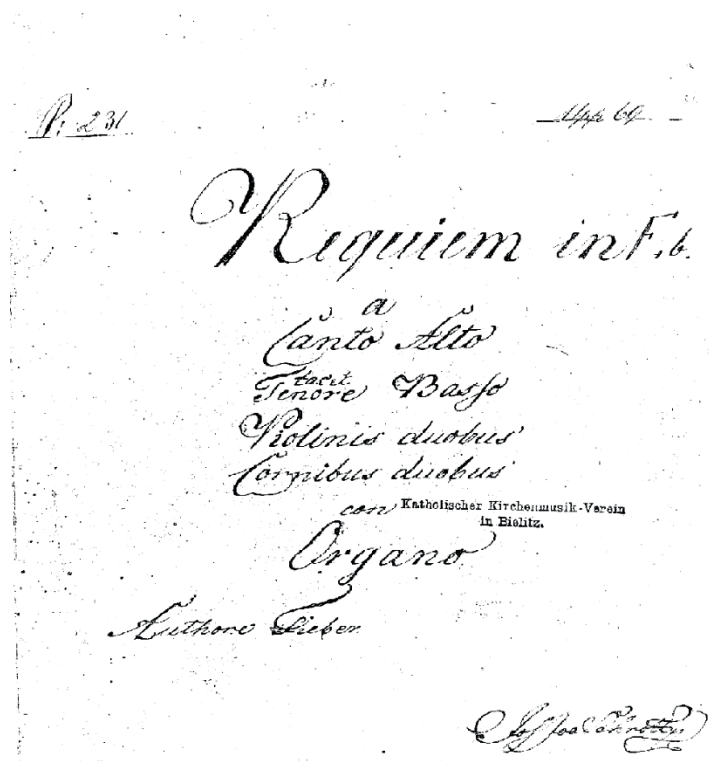 P: 231
App 69
Requiem in F. b.
a
Canto Alto
tacit
Tenore Basso
Violinis duobus
Cornibus duobus
con Katholischer Kirchenmusik-Verein
in Bielitz.
Organo
Authore Lieber